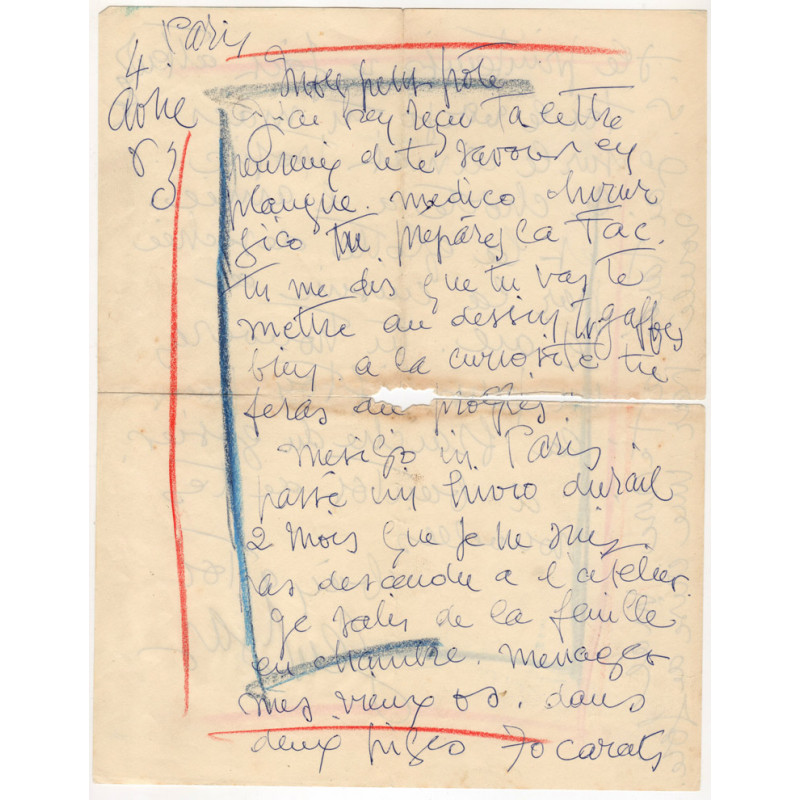 Paris
4
63
Mon petit pôte
j'ai bien reçu ta lettre
heureux de te savoir en
planque. medico chirur
gico tu prépares ca Fac.
tu me dis que tu vas te
mettre au dessin
bien. a la curiosité tu
feras des progrès.
in Paris
passé un hivro durail
2 mois que je ne suis
pas descendu a l'atelier.
Je salis de la feuille
en chambre. menager
mes vieux os. dans
deux piges 70 carats